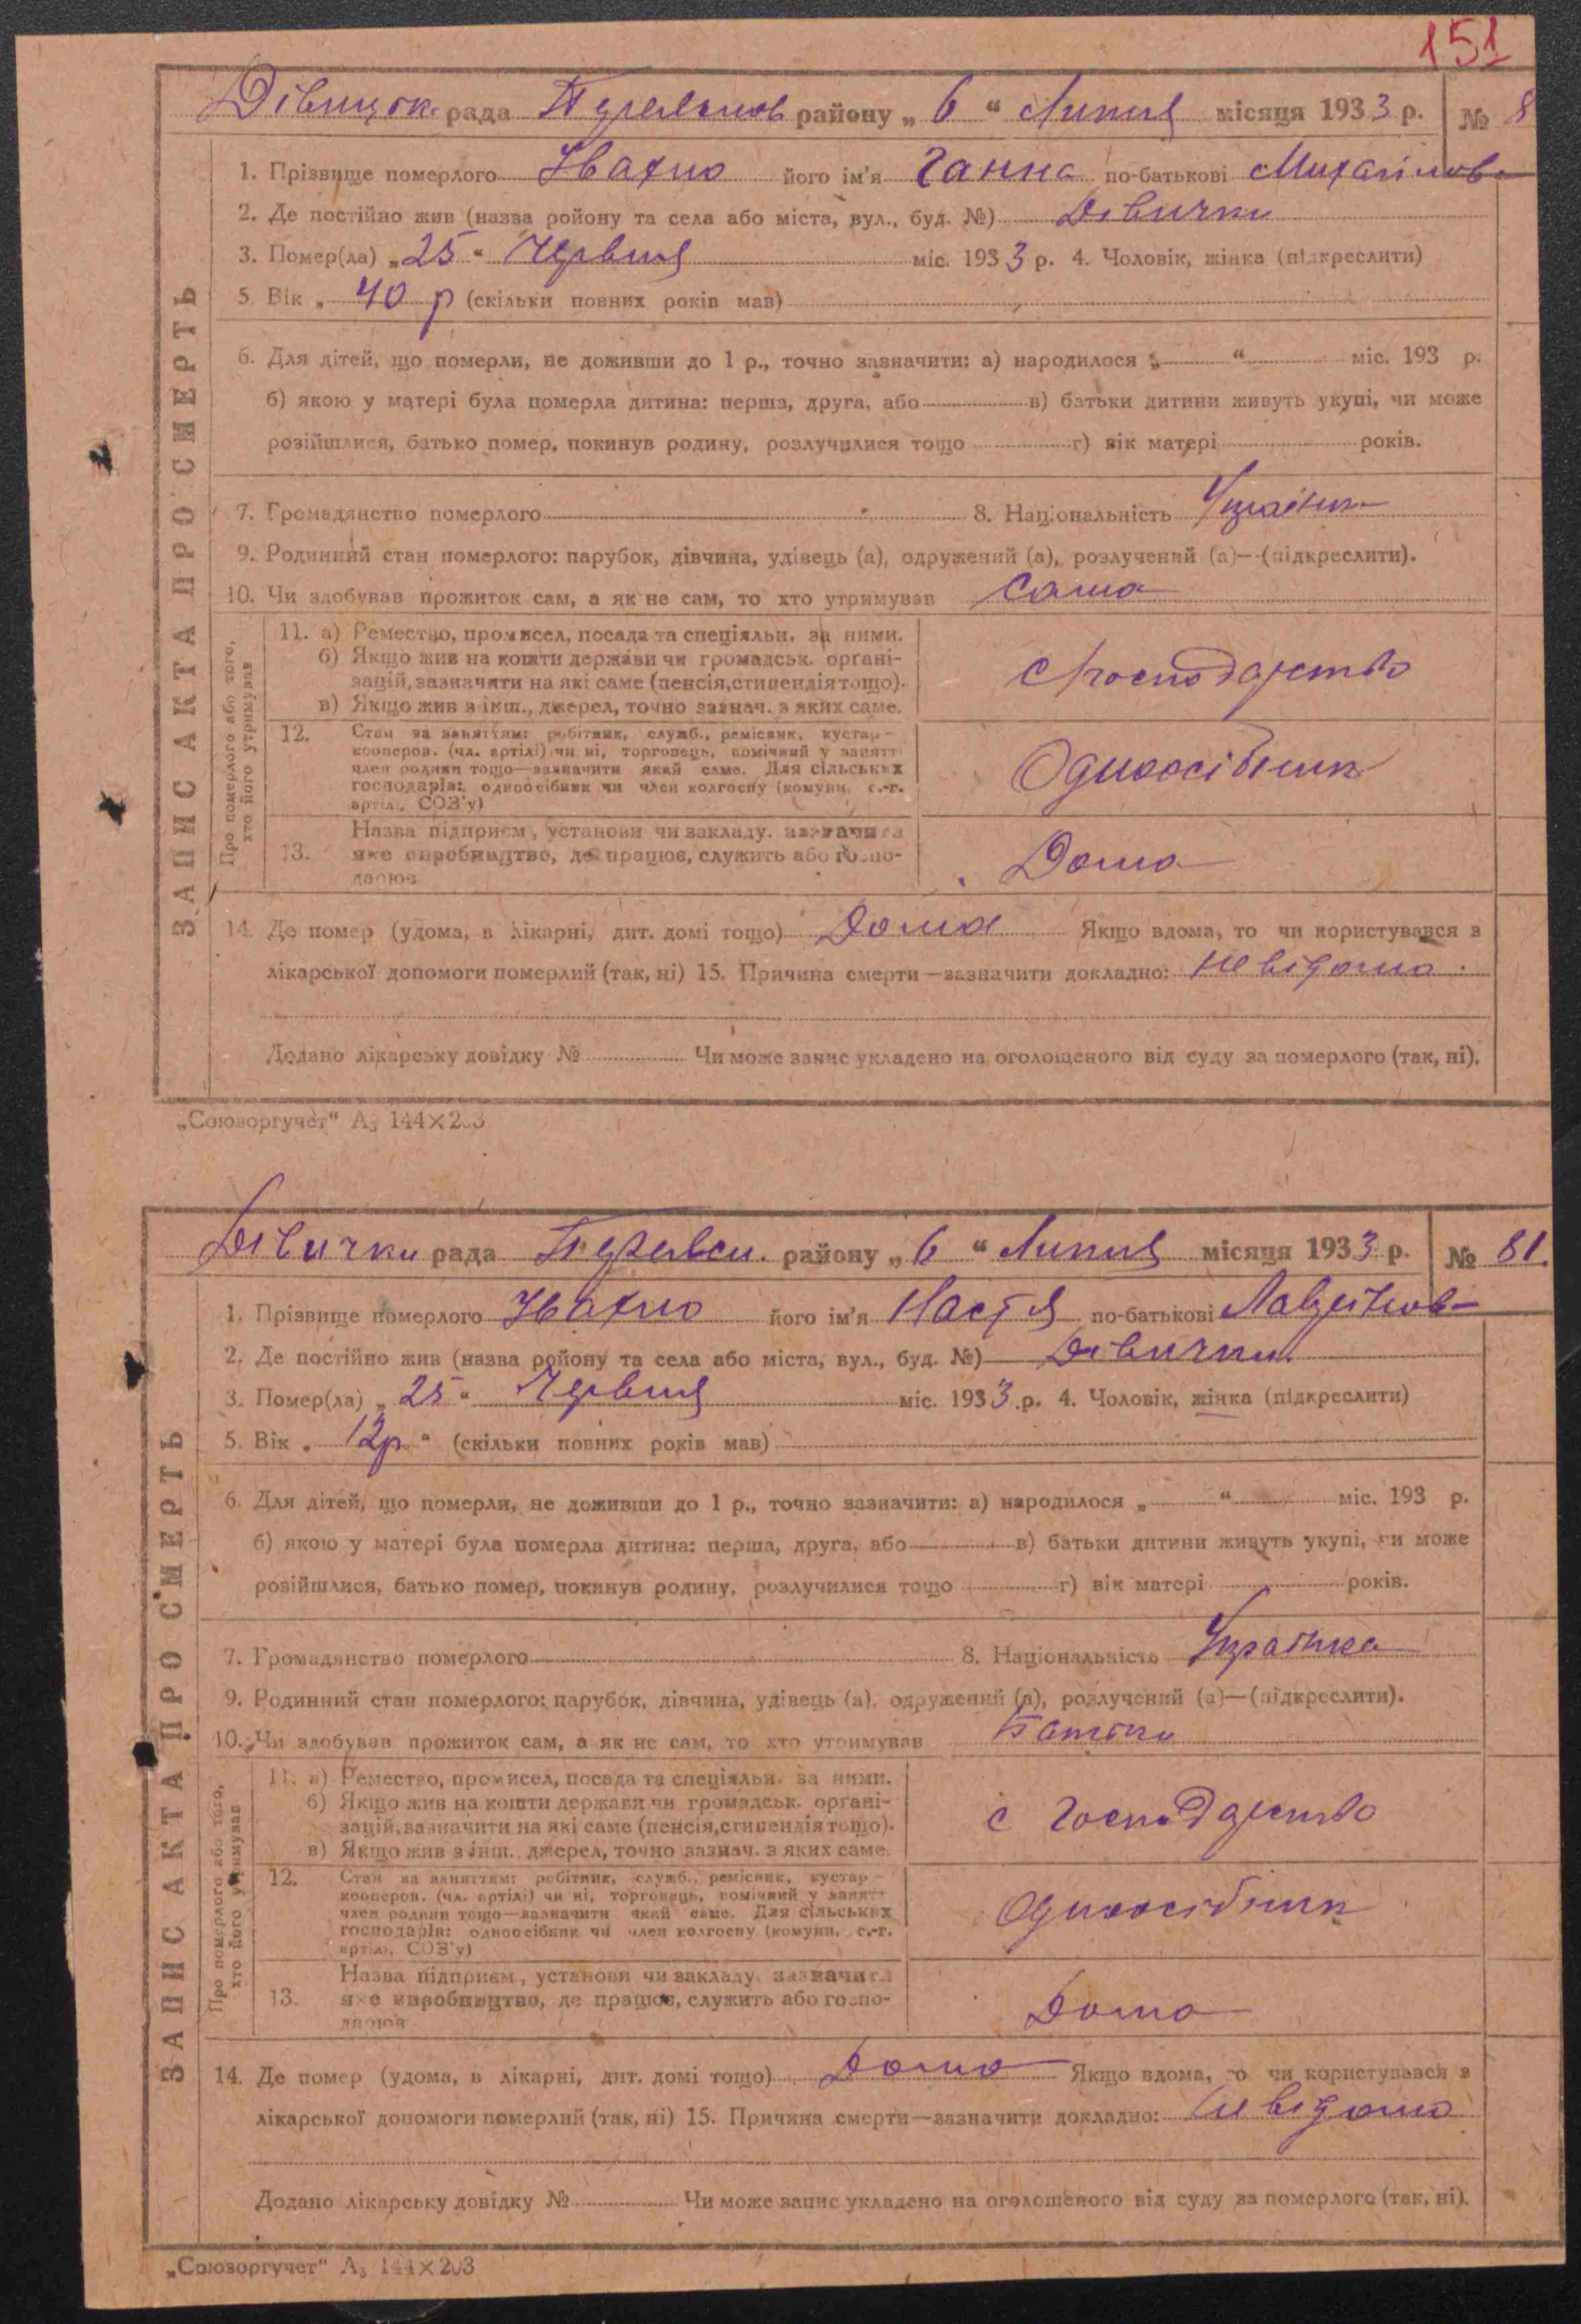 151
Дівицок. рада Переяслов району „ 6 “ Липня місяця 1933 р. № 8
1. Прізвище померлого Ивахно його ім'я Ганна по-батькові Михайлов
2. Де постійно жив (назва ройону та села або міста, вул., буд. №) Дівички
3. Помер(ла) „ 25 “ Червня міс. 1933 р. 4. Чоловік, жінка (підкреслити)
5. Вік „ 40 р (скільки повних років мав)
6. Для дітей, що померли, не доживши до 1 р., точно зазначити: а) народилося „ “ міс. 193 р.
б) якою у матері була померла дитина: перша, друга, або в) батьки дитини живуть укупі, чи може
розійшлися, батько помер, покинув родину, розлучилися тощо г) вік матері років.
7. Громадянство померлого 8. Національність Україн
9. Родинний стан померлого: парубок, дівчина, удівець (а), одружений (а), розлучений (а)—(підкреслити).
10. Чи здобував прожиток сам, а як не сам, то хто утримував Сама
ЗАПИС АКТА ПРО СМЕРТЬ
Про померлого або того, хто його утримував
11. а) Ремество, промисел, посада та спеціяльн. за ними.
б) Якщо жив на кошти держави чи громадськ. органі-
зацій, зазначити на які саме (пенсія, стипендія тощо).
в) Якщо жив з інш., джерел, точно зазнач. з яких саме.
с Господарство
12. Стан за заняттям: робітник, служб., ремісник, кустар-
кооперов. (чл. артілі) чи ні, торговець, помічний у занятт
член родини тощо—зазначити який саме. Для сільських
господарів: одноосібник чи член колгоспу (комуни, с.-г.
артілі, СОЗ'у)
Одноосібник
Назва підприєм, установи чи закладу, зазначити
13. яке виробництво, де працює, служить або госпо-
дарює
Дома
14. Де помер (удома, в лікарні, дит. домі тощо) Дома Якщо вдома, то чи користувався з
лікарської допомоги померлий (так, ні) 15. Причина смерти—зазначити докладно: невідома
Додано лікарську довідку № Чи може запис укладено на оголошеного від суду за померлого (так, ні).
„Союзоргучет“ А₅ 144×203
Дівички рада Переясл. району „ 6 “ Липня місяця 1933 р. № 81.
1. Прізвище померлого Ивахно його ім'я Настя по-батькові Лаврінов
2. Де постійно жив (назва ройону та села або міста, вул., буд. №) Дівички
3. Помер(ла) „ 25 “ Червня міс. 1933 р. 4. Чоловік, жінка (підкреслити)
5. Вік „ 12р “ (скільки повних років мав)
6. Для дітей, що померли, не доживши до 1 р., точно зазначити: а) народилося „ “ міс. 193 р.
б) якою у матері була померла дитина: перша, друга, або в) батьки дитини живуть укупі, чи може
розійшлися, батько помер, покинув родину, розлучилися тощо г) вік матері років.
7. Громадянство померлого 8. Національність Українка
9. Родинний стан померлого: парубок, дівчина, удівець (а), одружений (а), розлучений (а)—(підкреслити).
10. Чи здобував прожиток сам, а як не сам, то хто утримував Батьки
ЗАПИС АКТА ПРО СМЕРТЬ
Про померлого або того, хто його утримував
11. а) Ремество, промисел, посада та спеціяльн. за ними.
б) Якщо жив на кошти держави чи громадськ. органі-
зацій, зазначити на які саме (пенсія, стипендія тощо).
в) Якщо жив з інш., джерел, точно зазнач. з яких саме.
с Господарство
12. Стан за заняттям: робітник, служб., ремісник, кустар-
кооперов. (чл. артілі) чи ні, торговець, помічний у занятт
член родини тощо—зазначити який саме. Для сільських
господарів: одноосібник чи член колгоспу (комуни, с.-г.
артілі, СОЗ'у)
Одноосібник
Назва підприєм, установи чи закладу, зазначити
13. яке виробництво, де працює, служить або госпо-
дарює
Дома
14. Де помер (удома, в лікарні, дит. домі тощо) Дома Якщо вдома, то чи користувався з
лікарської допомоги померлий (так, ні) 15. Причина смерти—зазначити докладно: невідома
Додано лікарську довідку № Чи може запис укладено на оголошеного від суду за померлого (так, ні).
„Союзоргучет“ А₅ 144×203